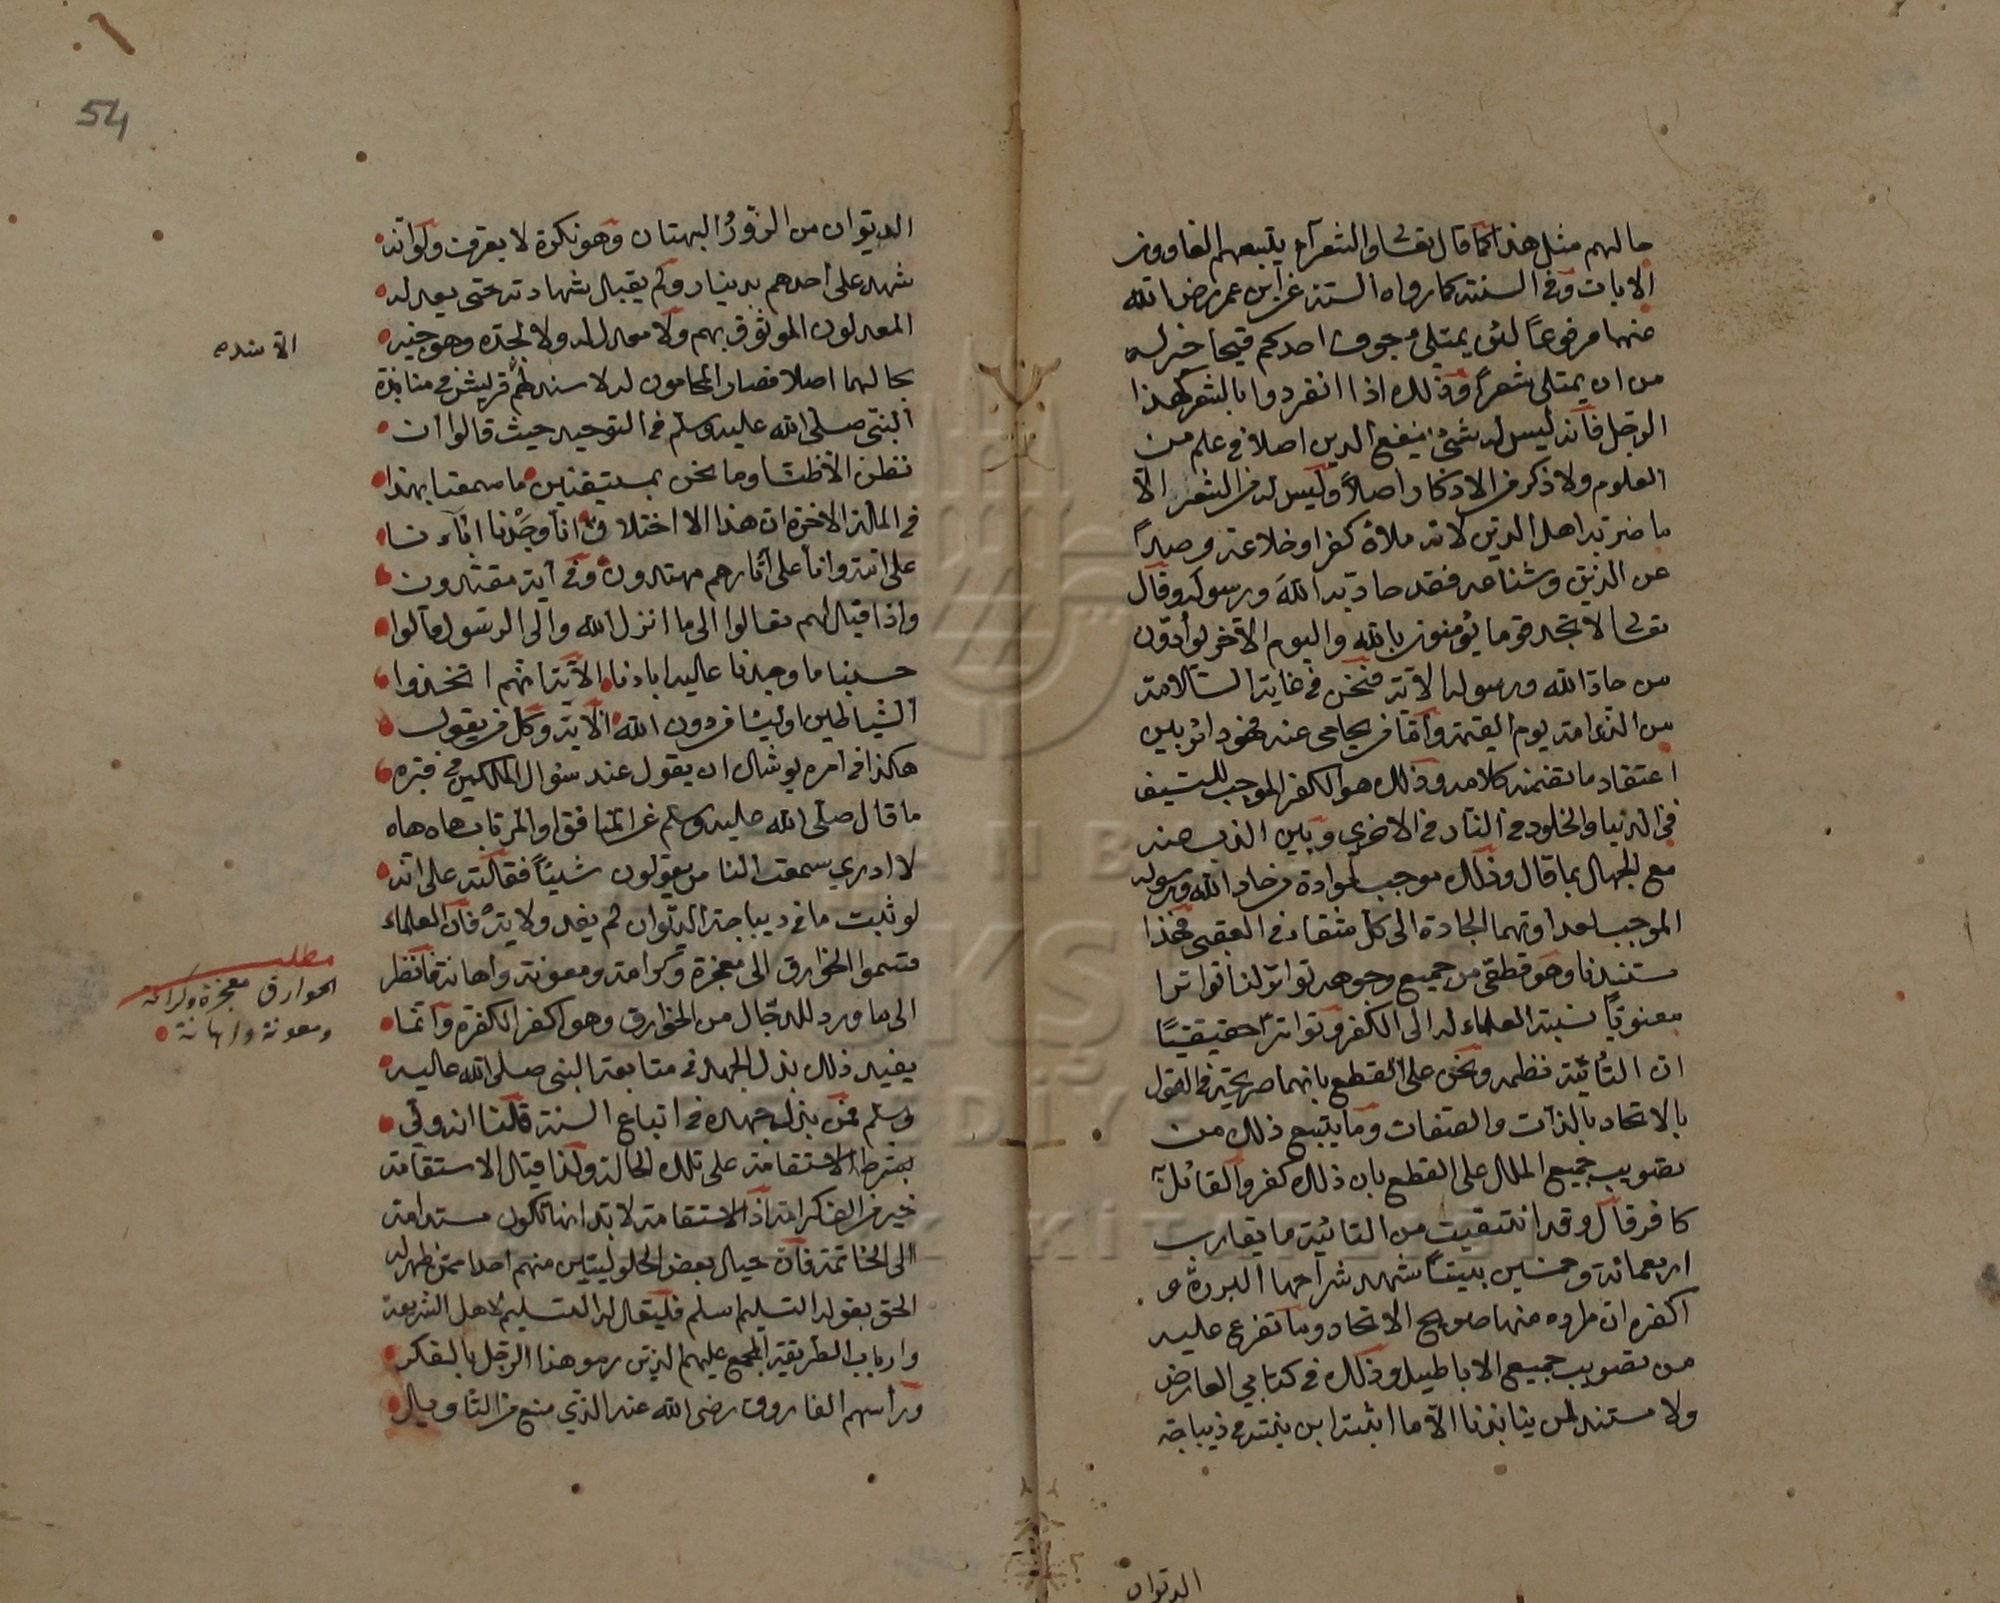 مالهم مثل هذا كما قال تعالى والشعرآء يتبعهم الغاوون
الايات وفى السنة كما رواه الستة عن ابن عمر رضى الله
عنهما مرفوعاً لئن يمتلى جوف احدكم قيحا خير له
من ان يمتلى شعراً وذلك اذا انفردوا بالشعر كهذا
الرجل فانه ليس له شئ ينفع الدين اصلا فى علم من
العلوم ولا ذكر من الاذكار اصلاً وليس له من الشعر الا
ما ضر به اهل الدين لانه ملأه كفرا وخلاعة وصداً
عن الدين وشناعة فقد حاد به الله ورسوله وقال
تعالى لا تجد قوما يؤمنون بالله واليوم الآخر يوآدون
من حاد الله ورسوله الآية فنحن فى غاية السلامة
من الندامة يوم القيمة وأما من يحامى عنه فهو دائر بين
اعتقاد ما تضمنه كلامه وذلك هو الكفر الموجب للسيف
فى الدنيا والخلود فى النار فى الاخرى وبين الذب عنه
مع الجهال بما قال وذلك موجب لموادة من حاد الله ورسوله
الموجب لعداوتهما الجادة الى كل مثقاد فى العقبى فهذا
مستندنا وهو قطعى من جميع وجوهه تواتر لنا تواترا
معنويّاً نسبة العلماء له الى الكفر وتواتراً حقيقيّاً
ان التائية نظمه ونحن على القطع بانهما صريحة فى القول
بالاتحاد بالذات والصفات وما يتبع ذلك من
تصويب جميع الملل على القطع بان ذلك كفر والقائل به
كافر قال وقد انتقيت من التائية ما يقارب
اربعمائة وخمسين بيتاً شهد شراحها البررة و
الكفرة ان مراده منها صريح الاتحاد وما تفرع عليه
من تصويب جميع الاباطيل وذلك فى كتابي العارض
ولا مستند لمن ينابذنا الا ما اثبته ابن بنته فى ديباجة
الديوان
54
الديوان من الزور البهتان وهو نكرة لا يعرف ولو انه
شهد على احدهم بدينار لم يقبل شهادته حتى يعدله
المعدلون الموثوق بهم ولا معدل له ولا لجده وهو خبير
بحالهما اصلا فصار المحامون له لا سند لهم قريش فى منابذة
النبى صلى الله عليه وسلم فى التوحيد حيث قالوا ان
نظن الا ظنا وما نحن بمستيقنين ما سمعنا بهذا
فى الملة الاخرة ان هذا الا اختلاق انا وجدنا اباءنا
على امة وانا على آثارهم مهتدون وفى آية مقتدون
واذا قيل لهم تعالوا الى ما انزل الله والى الرسول قالوا
حسبنا ما وجدنا عليه اباءنا الآية انهم اتخذوا
الشياطين اولياء من دون الله الآية وكل من يقول
هكذا فى امره يوشك ان يقول عند سؤال الملكين فى قبره
ما قال صلى الله عليه وسلم عن المنافق او المرتاب هاه هاه
لا ادري سمعت الناس يقولون شيئاً فقلته على انه
لو ثبت ما فى ديباجة الديوان لم يفد ولابد فان العلماء
قسموا الخوارق الى معجزة وكرامة ومعونة واهانة فانظر
الى ما ورد للدجال من الخوارق وهو اكفر الكفرة وانما
يفيد ذلك بذل الجهد فى متابعة النبى صلى الله عليه
وسلم فمن بذل جهده فى اتباع السنة قلنا انه ولي
بشرط الاستقامة على تلك الحالة ولذا قيل الاستقامة
خير من الف كرامة اذ الاستقامة لابد انها تكون مستدامة
الى الخاتمة فان حيال بعض الحلوليين منهم احدا ممن ظهر له
الحق بقوله التسليم اسلم فليقال له التسليم لاهل الشريعة
وارباب الطريقة المجمع عليهم الذين رموا هذا الرجل بالفكر
ورأسهم الفاروق رضى الله عنه الذي منع من التاويل
الا سنده
مطلب
الخوارق معجزة وكرامة
ومعونة واهانة